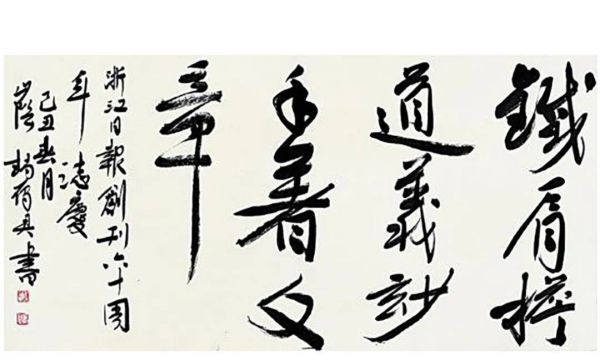 鐵肩擔
道義妙
手著文
章
浙江日報創刊六十周
年誌慶
己丑春月
書